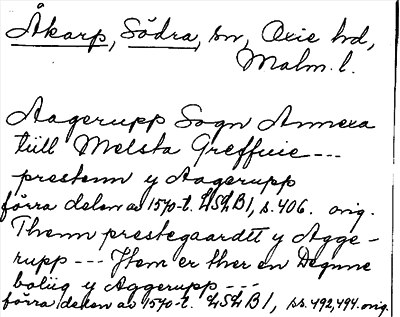 Åkarp, Södra, sn, Oxie hd,
Malm. l.
Aagerupp Sogn Annexa
tiill Melsta Greffuie ---
prestenn y Aagerupp
förra delen av 1570-t. LSLB1, s. 406. orig.
Thenn prestegaardtt y Agge-
rupp --- Item er ther en Degnne
boliig y Aggerupp ---
förra delen av 1570-t. LSLB1, ss. 492, 494. orig.